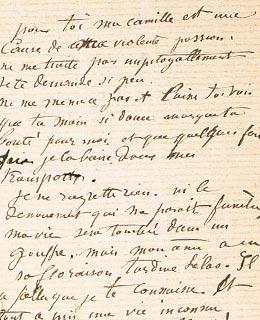 pour toi ma camille est une
cause de violente passion.
ne me traite pas impitoyablement
je te demande si peu.
ne me menace pas et laisse toi voir
que ta main si douce marque ta
bonté pour moi et que quelques fois
je la baise dans mes
transports.
je ne regrette rien. ni le
denouement qui me parait funèbre
ma vie sera tombée dans un
gouffre. mais mon ame a eu
sa floraison, tardive hélas. Il
a fallu que je te connaisse et
tout a pris une vie inconnu